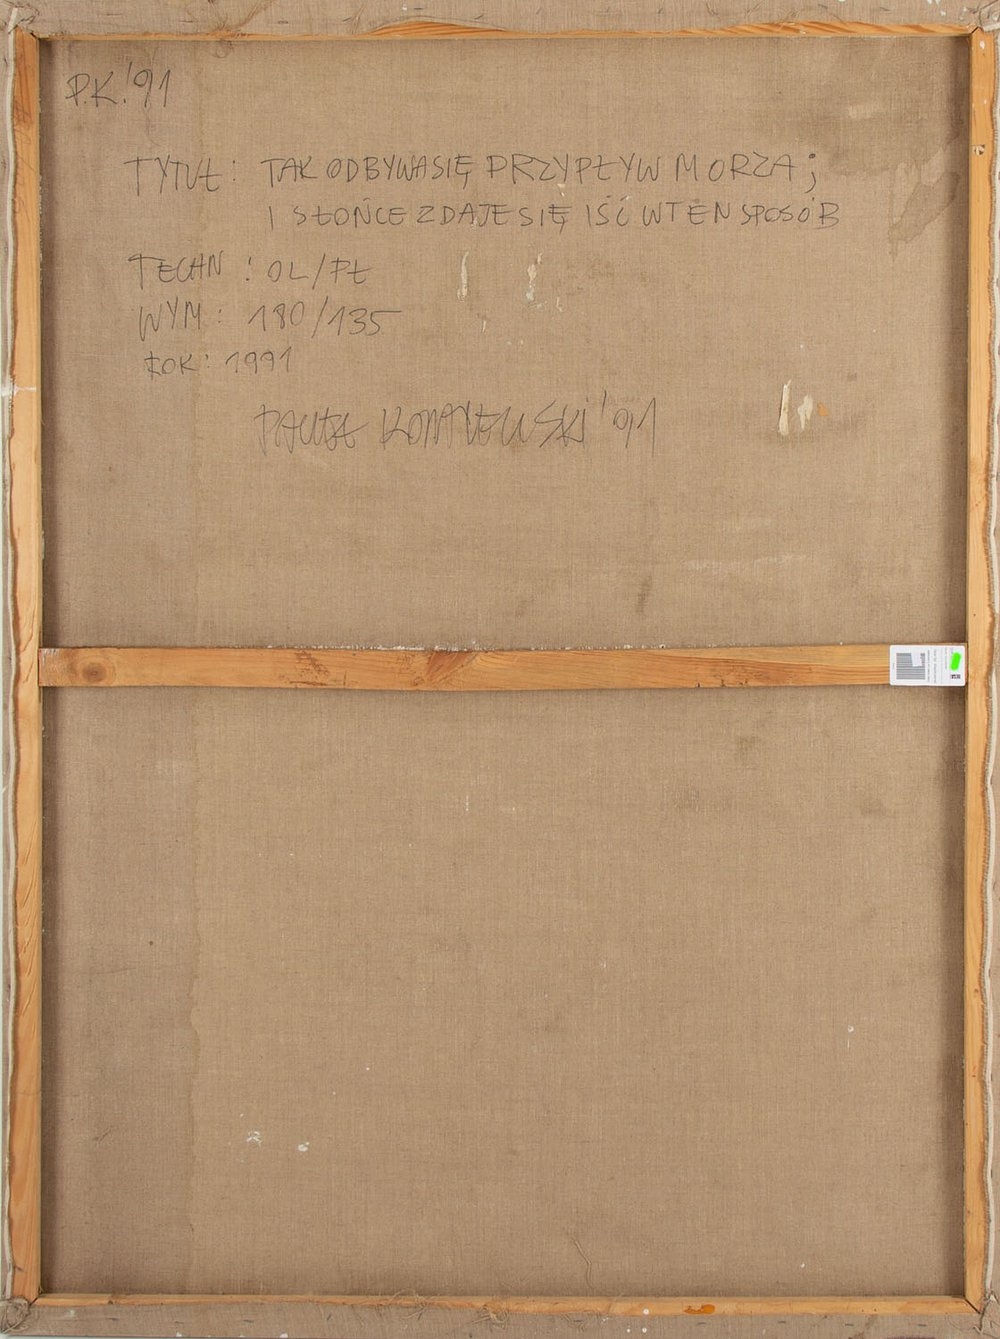 P.K.'91
TYTUŁ: TAK ODBYWA SIĘ PRZYPŁYW MORZA;
I SŁOŃCE ZDAJE SIĘ IŚĆ W TEN SPOSÓB
TECHN: OL/PŁ
WYM: 180/135
ROK: 1991
PAWEŁ KOWALEWSKI '91